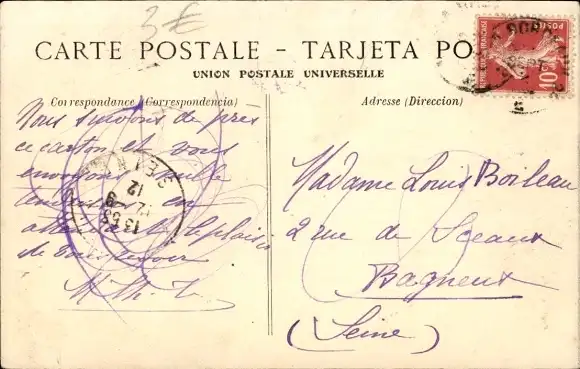 3€
CARTE POSTALE - TARJETA PO
UNION POSTALE UNIVERSELLE
Correspondance (Correspondencia)
Adresse (Direccion)
REPUBLIQUE FRANÇAISE
POSTES
10c
BORDEAUX
SEPT
Nous suivons de près
ce carton et vous
envoyons mille
en
attendant le plaisir
de vous revoir
SEINE
12
9
13 55
Madame Louis Boileau
2 rue de Sceaux
Bagneux
(Seine)